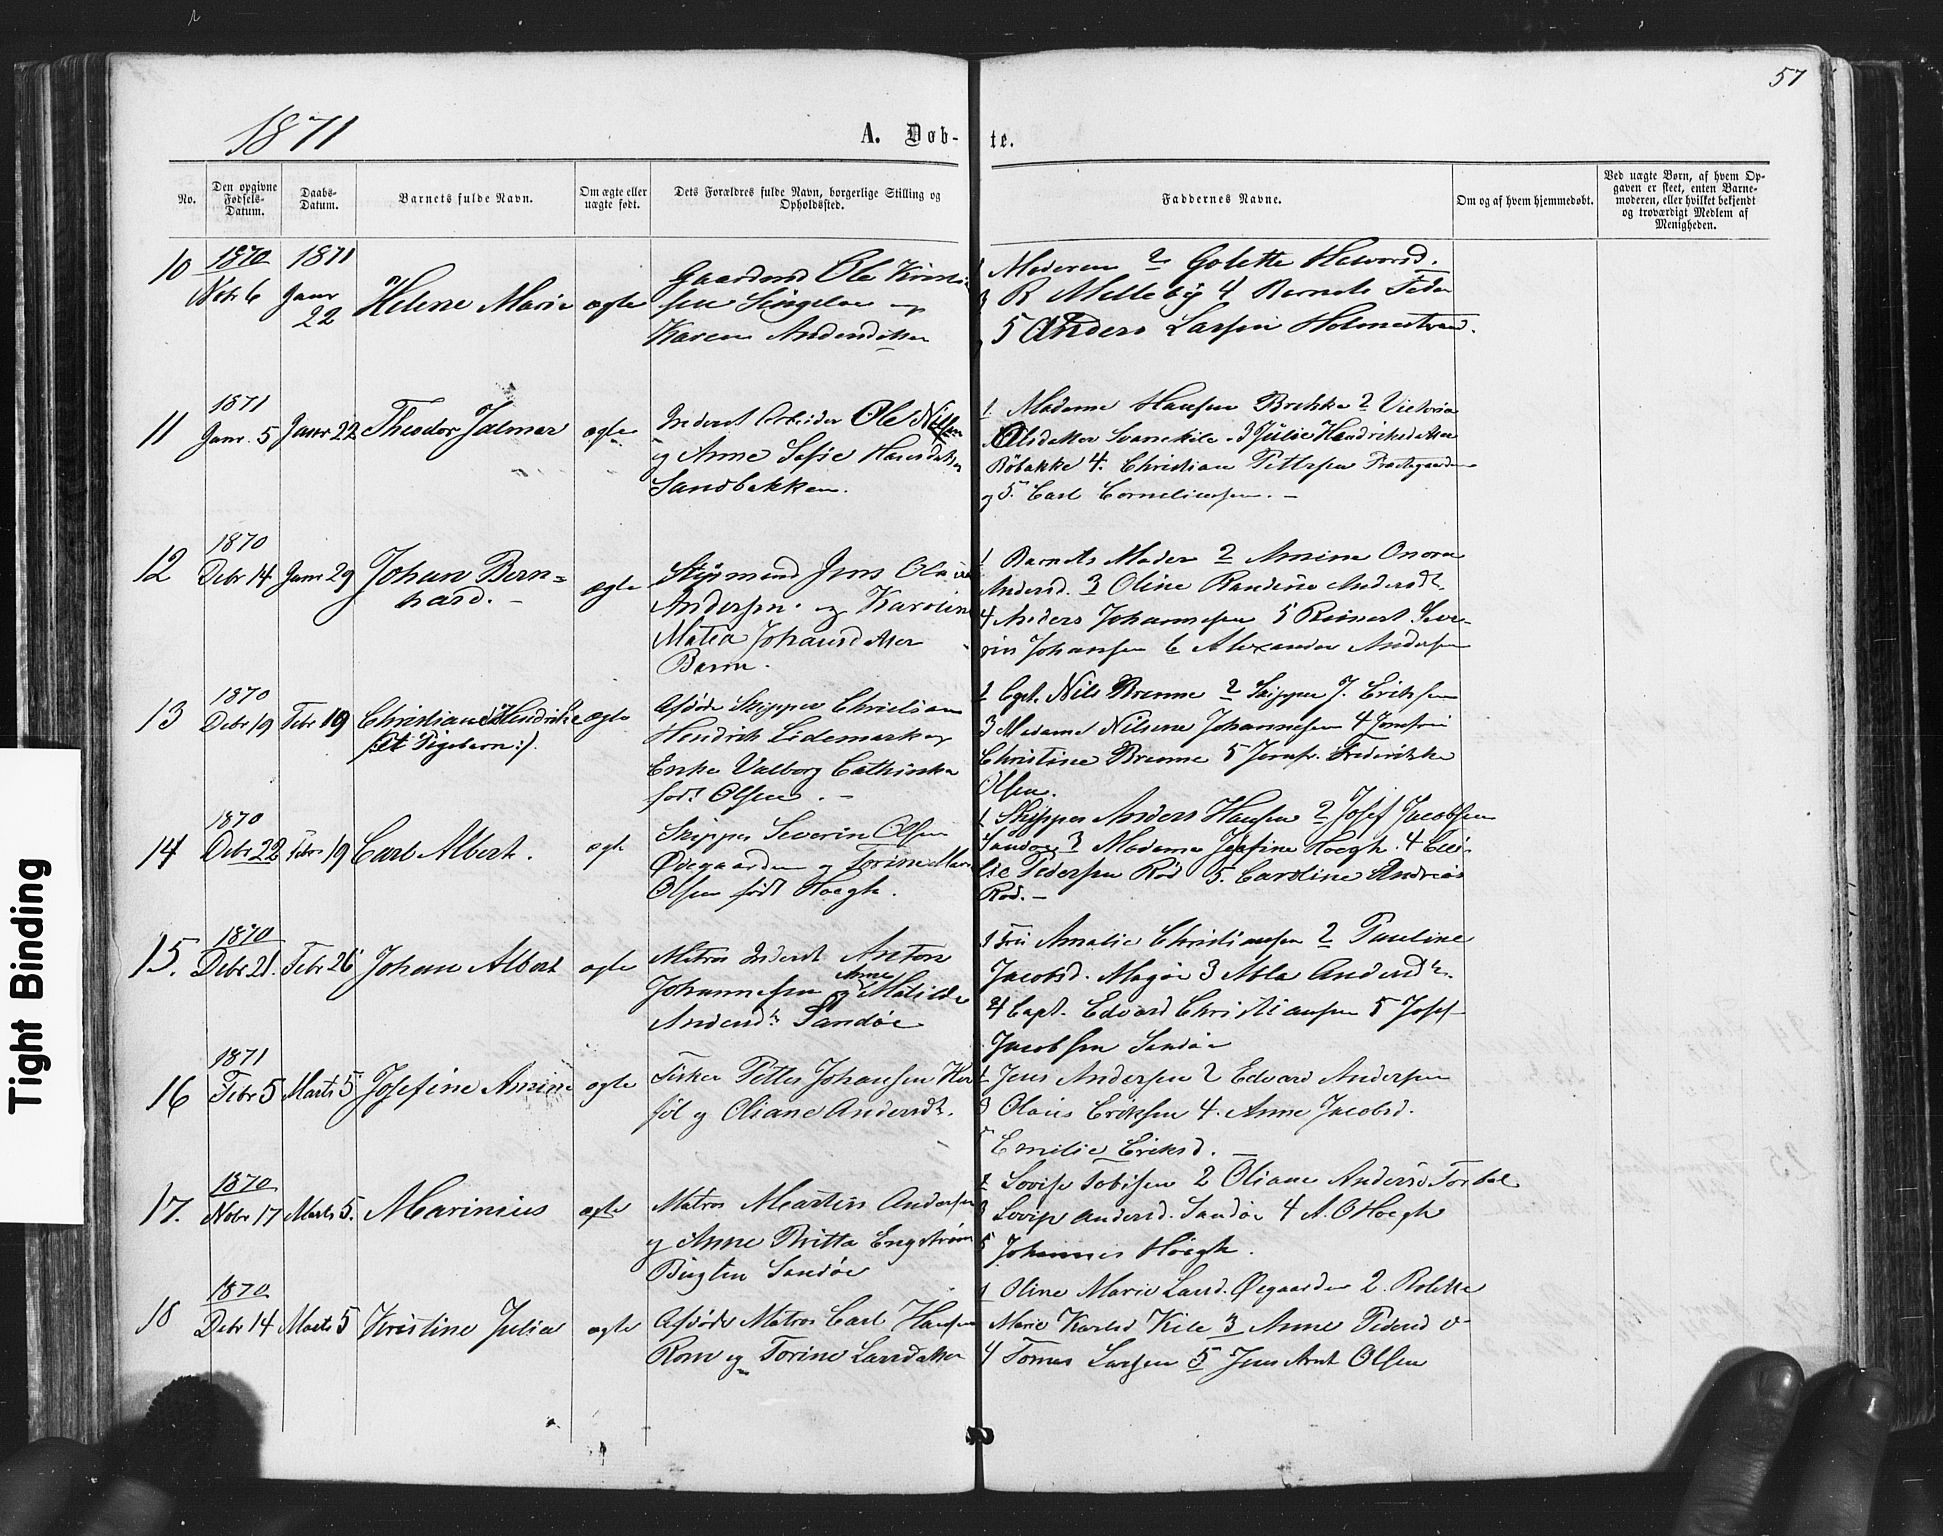 57
1871
A. Døb- te.
No.
Den opgivne Fødsels-Datum.
Daabs-Datum.
Barnets fulde Navn.
Om ægte eller uægte født.
Dets Forældres fulde Navn, borgerlige Stilling og Opholdssted.
Faddernes Navne.
Om og af hvem hjemmedøbt.
Ved uægte Børn, af hvem Opgaven er skeet, enten Barnemoderen, eller hvilket bekjendt og troværdigt Medlem af Menigheden.
10 1870 Nobr 6 1871 Janr 22 Helene Marie ægte
Gaardmd Ole
Karen
Moderen 2 Golette
R Melleby 4 Barnets Fader
5 Anders Larsen Holmestrand.
11 1871 Janr. 5 Janr 22 Theodor Jalmar ægte
Inderst Arbeider Ole Nilsen
og Anne Sofie Hansdatter
Sandbakken.
1 Madame Hansen Brekke 2 Victoria
Olsdatter Svanekile 3 Julie Hendriksdatter
Røbakke 4. Christian Pettersen
og 5. Carl Corneliussen. -
12 1870 Debr 14 Janr 29 Johan Bern=
hard. - ægte
Styrmand Jens
Andersen. og Karoline
Matea Johansdatter
Barm.
1 Barnets Moder 2 Amine Onora
Andersd. 3 Oline Andersdt.
4 Anders Johannesen 5 Reinert Seve-
rin Johansen 6 Alexander Andersen
13 1870 Debr 19 Febr 19 Christiane Hendrikke ægte
(:Et Pigebarn:).
Afdøde Skipper Christian
Hendrik Lidemark og
Enke Valborg Cathinka
født Olsen. -
1 Capt. Nils Brenne 2 Skipper J. Eriksen
3 Madame Nilsine Johannesen 4 Jomfru
Christine Brenne 5 Jomfr. Frederikke
Olsen.
14 1870 Debr 22 Febr 19 Carl Albert. ægte
Skipper Severin Olsen
Ødegaarden og Torine
Olsen født Hoegh.
1 Skipper Anders Hansen 2 Josef Jacobsen
Sandøe 3 Madame Josefine Hoegh. 4
Pedersen Rød 5. Caroline
Rød. -
15. 1870 Debr 21. Febr 26 Johan Albert ægte
Matros Inderst Anton
Johannesen og Anne Matilde
Andersdt. Sandøe
1 Fru Amalie Christiansen 2 Pauline
Jacobsd. Magøe 3 Andersdt.
4 Capt. Edvard Christiansen 5 Josef
Jacobsen Sandøe
16 1871 Febr 5 Marts 5 Josefine Amine ægte
Fisker Petter Johansen
føl og Oliane Andersdt.
1 Jens Andersen 2 Edvard Andersen
3 Olaus Eriksen 4. Anne Jacobsd.
5 Emilie Eriksd. -
17. 1870 Nobr 17 Marts 5. Marinius ægte
Matros Martin Andersen
og Anne Britta Engstrøm
Bugten Sandøe
1 Lovise Tobisen 2 Oliane Andersd
3 Lovise Andersd. Sandøe 4 A. O Hoegh
5 Johannes Høegh.
18 1870 Debr 14 Marts 5 Kristine Julia ægte
Afdøde Matros Carl Hansen
Rom og Torine Larsdatter
1 Oline Marie Larsd. Øegaarden 2.
Marie Karlsd Kile 3 Anne Pedersd
4 Tomas Larsen 5 Jens Arnt Olsen
Tight Binding